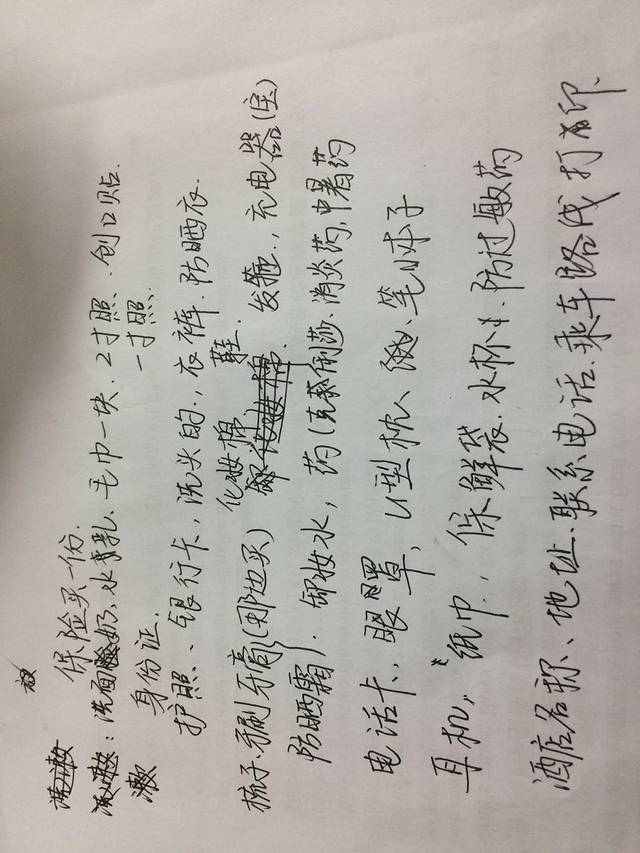 保险买一份.
洗面奶、水、乳、毛巾一块、2寸照、创口贴.
一寸照.
身份证.
护照、银行卡,洗头的.,衣裤.防晒衣.
化妆棉 鞋.
梳子.牙刷牙膏(那边买) 发箍.,充电器(宝)
防晒霜).卸妆水,药(克痢痧.消炎药,中暑药
电话卡,眼罩,U型枕、笔,小本子
耳机,纸巾.,保鲜袋.水杯.防过敏药
酒店名称、地址.联系电话.乘车路线打印.